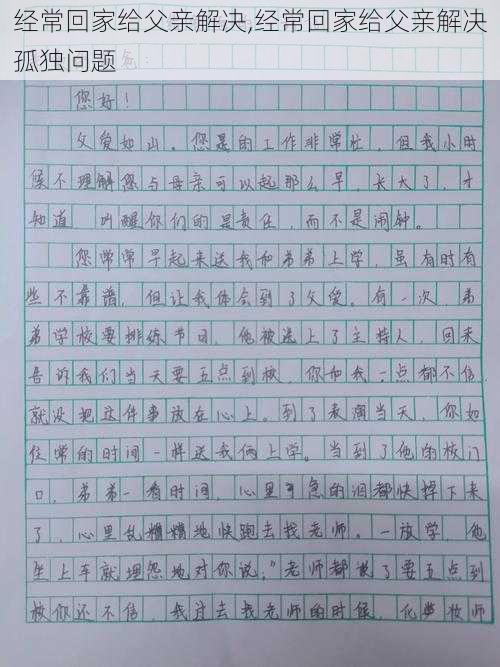 经常回家给父亲解决,经常回家给父亲解决
孤独问题
爸:
您好!
父爱如山。您是的工作非常忙,但我小时
候不理解您与母亲可以起那么早,长大了,才
知道,叫醒你们的是责任,而不是闹钟。
您常常早起来送我和弟弟上学,虽有时有
些不靠谱,但让我体会到了父爱。有一次,弟
弟学校要排练节目,他被选上了主持人,回来
告诉我们当天要五点到校,你和我一点都不信,
就没把这件事放在心上。到了表演当天,你如
往常的时间一样送我俩上学。当到了他的校门
口,弟弟一看时间,心里可急的泪都快掉下来
了,心里乱糟糟地快跑去找老师。一放学,他
坐上车就埋怨地对你说:"老师都说了要五点到
校你还不信,我过去找老师的时候,化妆师